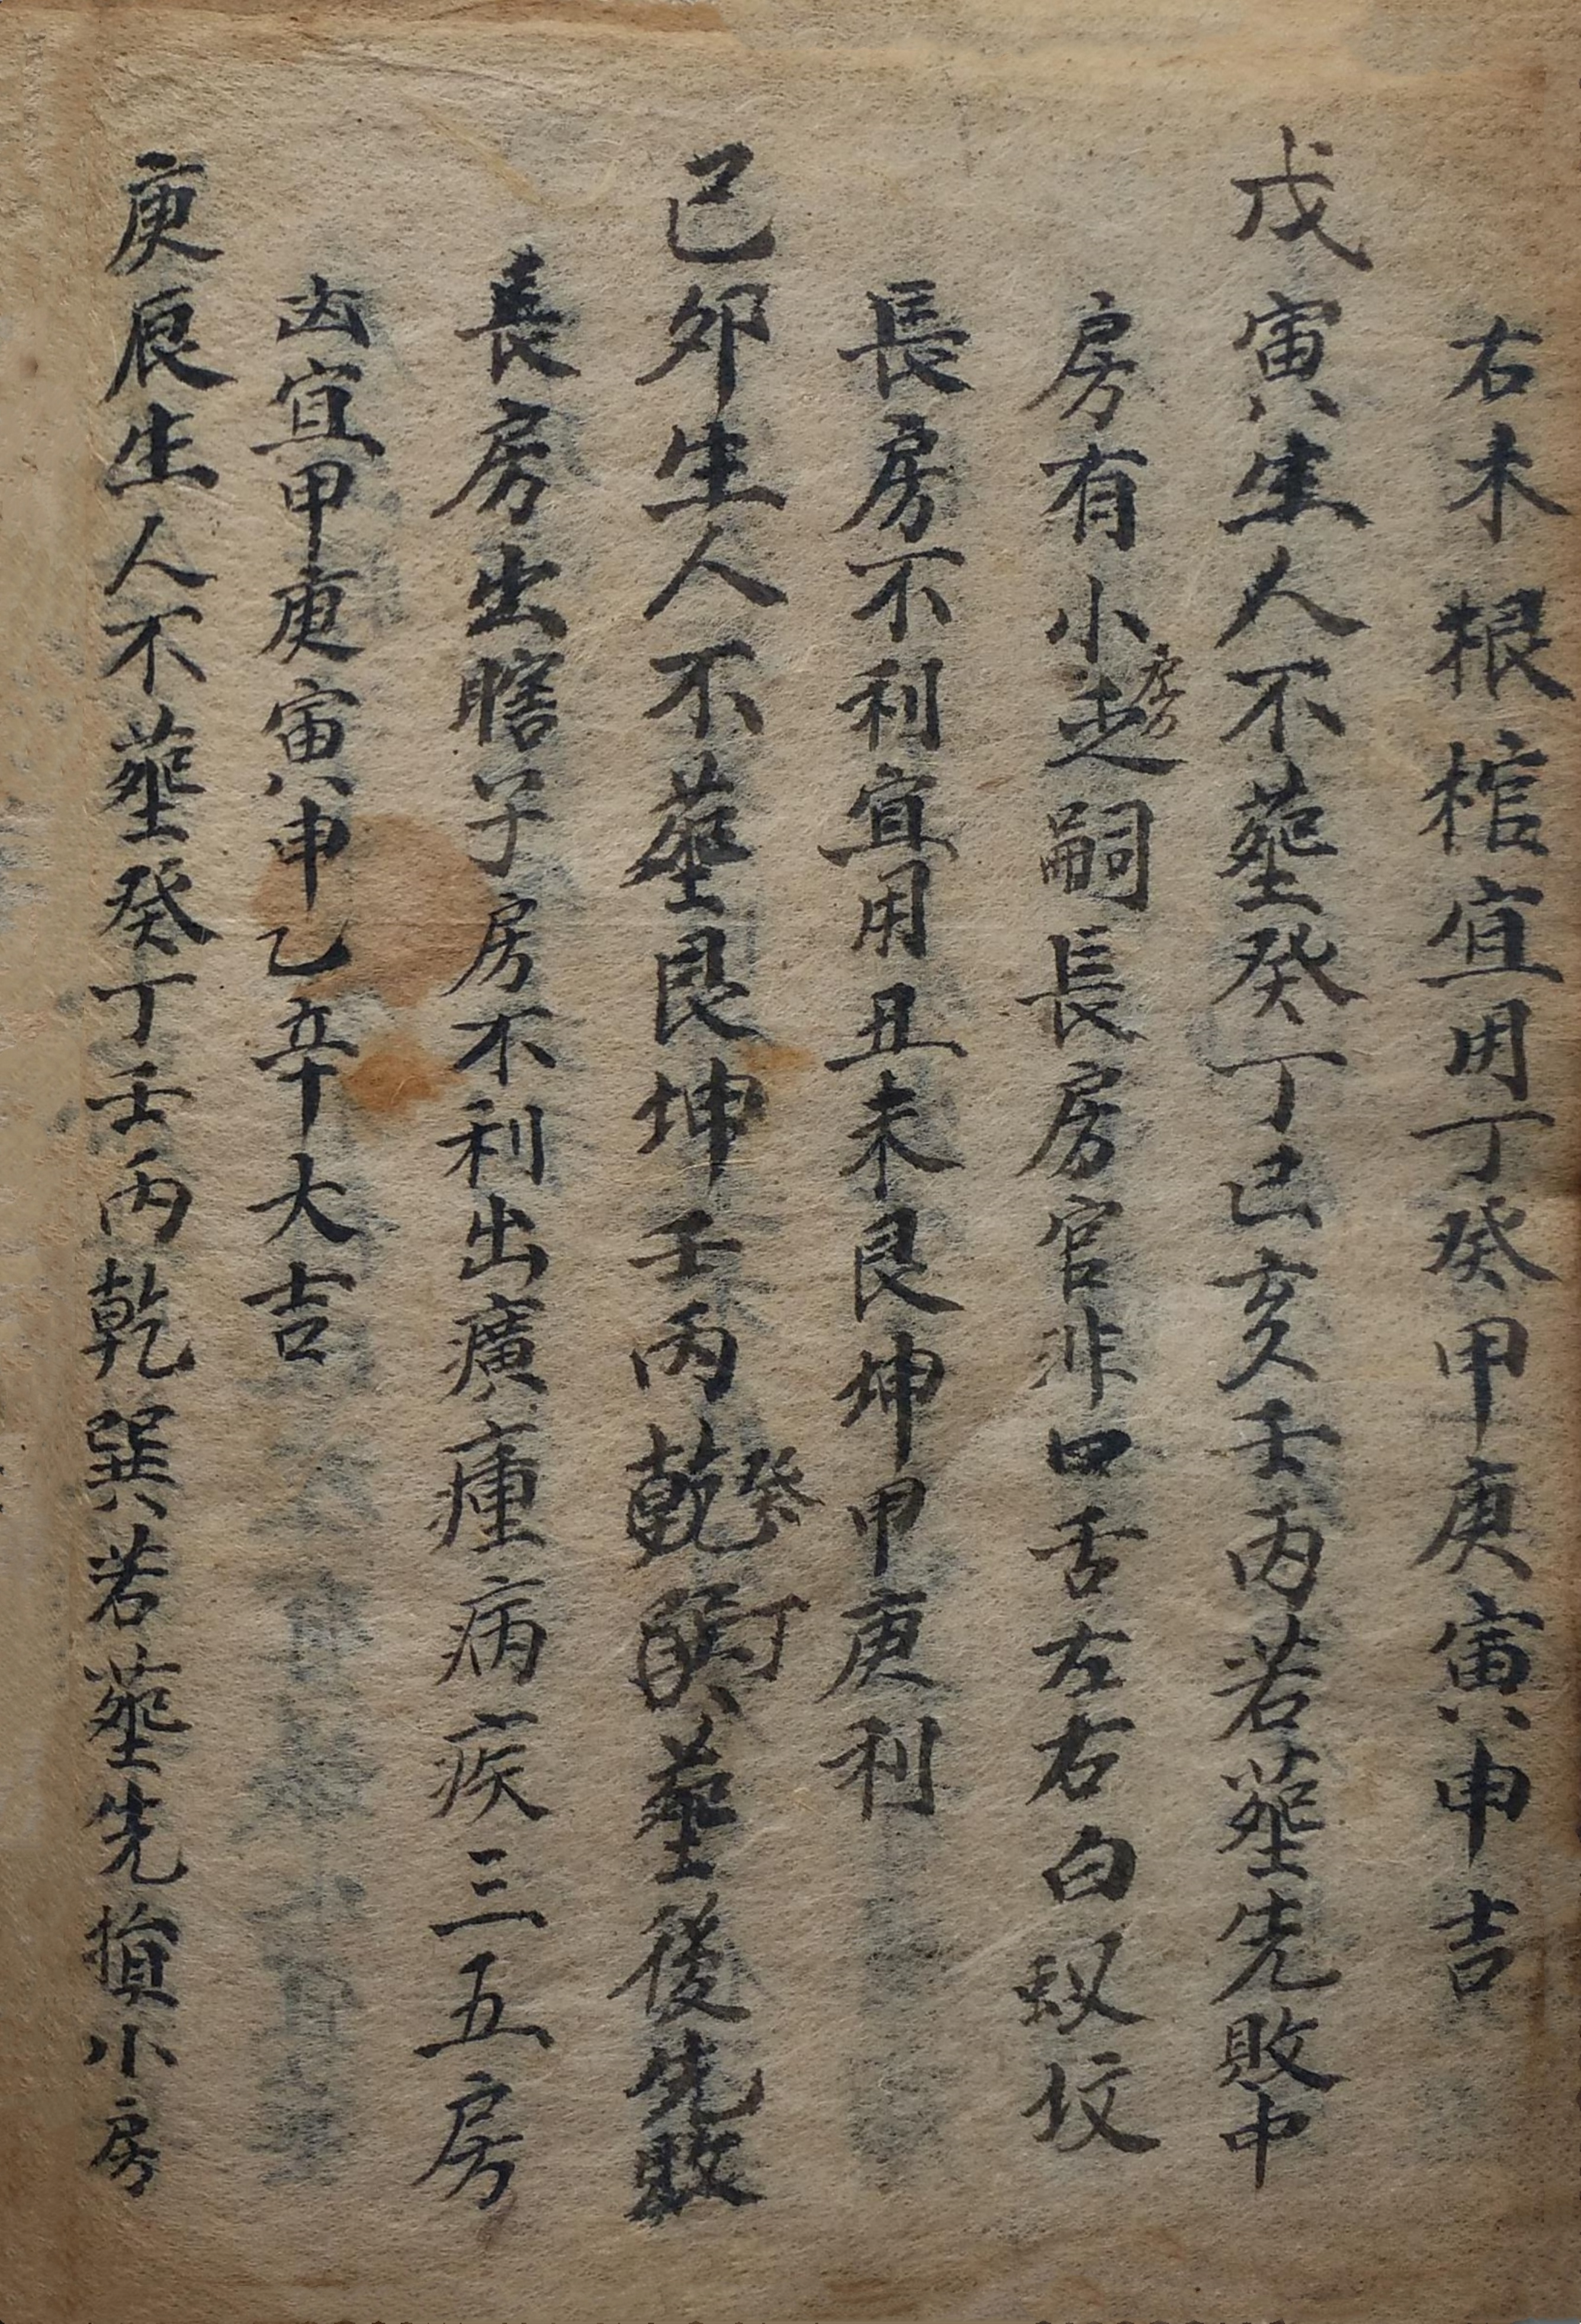 右木根棺宜用丁癸甲庚寅申吉
戊寅生人不塟癸丁己亥壬丙若塟先敗中
房有小房乏嗣長房官非口舌左右白蚁坟
長房不利宜用丑未艮坤甲庚利
己卯生人不塟艮坤壬丙乾癸巽丁塟後先敗
長房出瞎子房不利出癀瘇病疾三五房
凶宜甲庚寅申乙辛大吉
庚辰生人不塟癸丁壬丙乾巽若塟先損小房